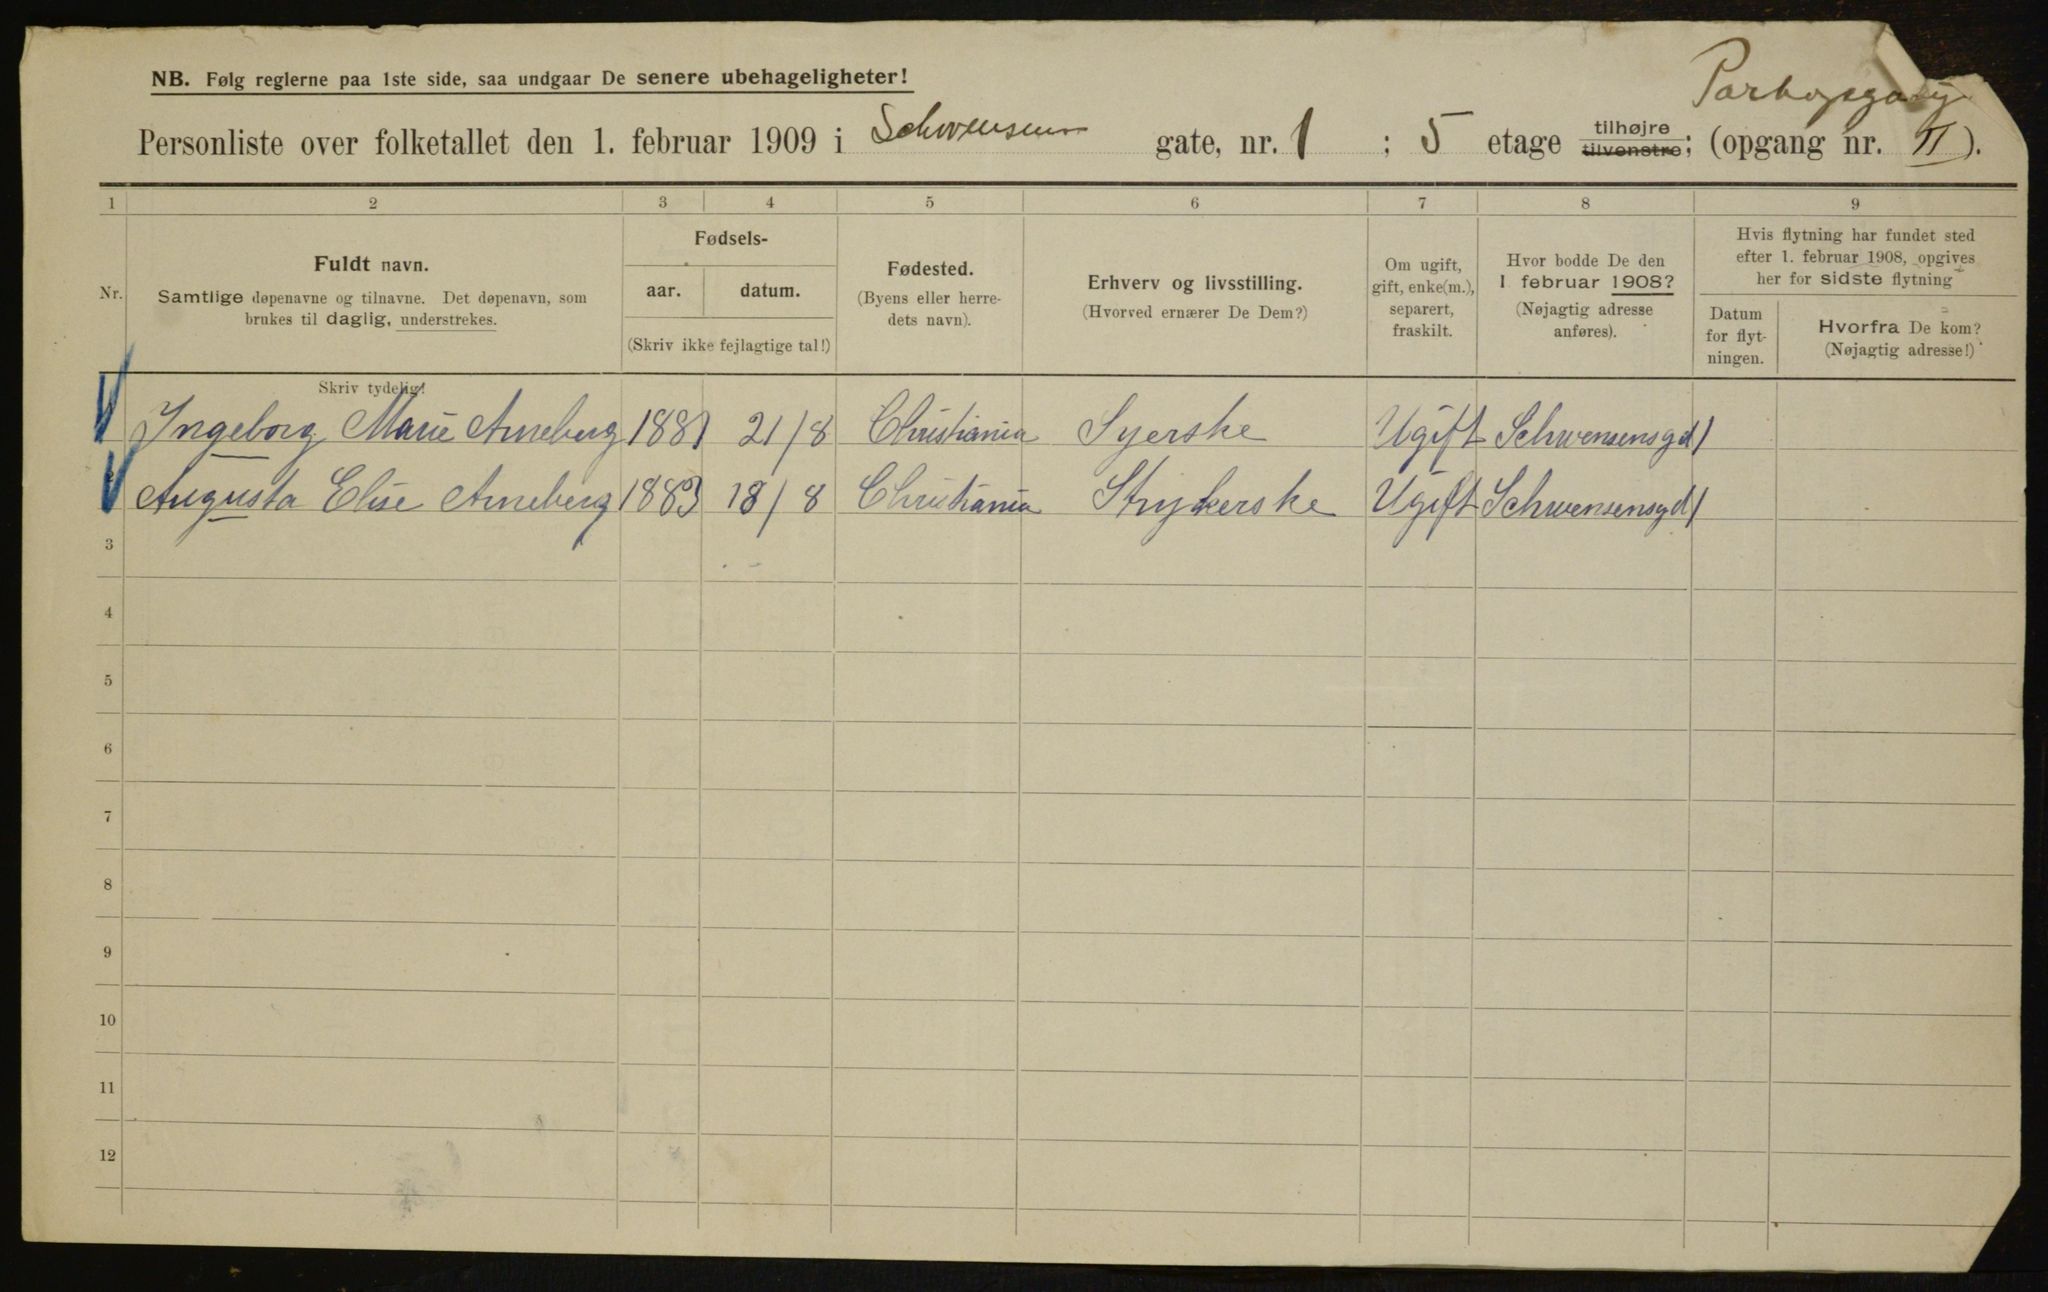 NB. Følg reglerne paa 1ste side, saa undgaar De senere ubehageligheter!
Portopgang
Personliste over folketallet den 1. februar 1909 i Schwensens gate, nr. 1 ; 5 etage tilhøjre tilvenstre; (opgang nr. II).
1 2 3 4 5 6 7 8 9
Nr.
Fuldt navn.
Samtlige døpenavne og tilnavne. Det døpenavn, som
brukes til daglig, understrekes.
Fødsels-
aar. datum.
(Skriv ikke fejlagtige tal!)
Fødested.
(Byens eller herre-
dets navn).
Erhverv og livsstilling.
(Hvorved ernærer De Dem?)
Om ugift,
gift, enke(m.),
separert,
fraskilt.
Hvor bodde De den
1 februar 1908?
(Nøjagtig adresse
anføres).
Hvis flytning har fundet sted
efter 1. februar 1908, opgives
her for sidste flytning
Datum
for flyt-
ningen.
Hvorfra De kom?
(Nøjagtig adresse!)
Skriv tydelig!
Ingeborg Marie Arneberg 1881 21/8 Christiania Syerske Ugift Schwensensgd 1
Augusta Elise Arneberg 1883 18/8 Christiania Strykerske Ugift Schwensensgd 1
3
4
5
6
7
8
9
10
11
12